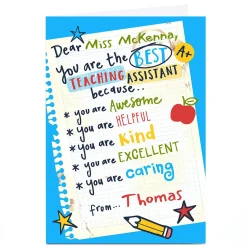 Dear Miss McKenna,
you are the BEST
A+
TEACHING ASSISTANT
because..
* you are Awesome
* you are HELPFUL
* you are Kind
* you are EXCELLENT
* you are caring
from... Thomas